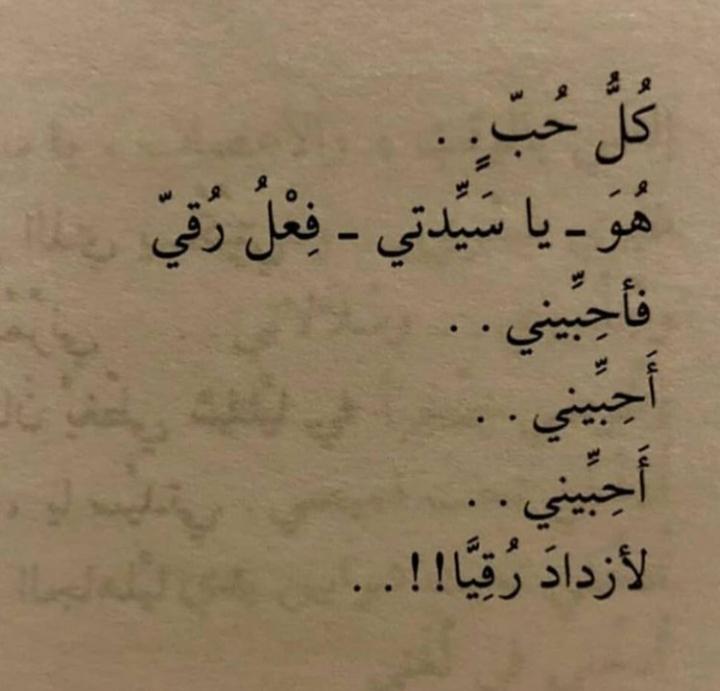 كُلُّ حُبّ ٍ. .
هُوَ ـ يا سَيِّدتي ـ فِعْلُ رُقيّ
فأحِبِّيني . .
أَحِبِّيني . .
أَحِبِّيني . .
لأزدادَ رُقِيًّا!! . .